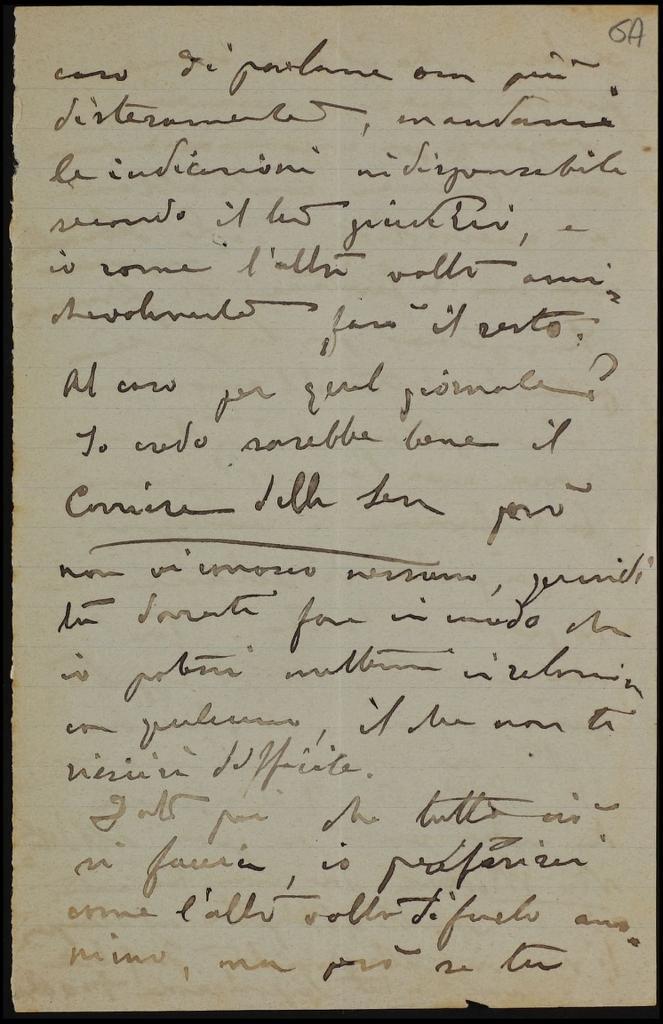 6A
caso di parlarne con più
distesamente, mandami
le indicazioni indispensabili
secondo il tuo giudizio, e
io come l'altra volta ami-
chevolmente farò il resto.
Al caso per qual giornale?
Io credo sarebbe bene il
Corriere della Sera però
non vi conosco nessuno, quindi
tu dovresti fare in modo che
io potessi mettermi in relazion
con qualcuno, il che non ti
riescirà difficile.
Dato poi che tutto ciò
si faccia, io preferirei
come l'altra volta di farlo ano-
nimo, ma però se tu